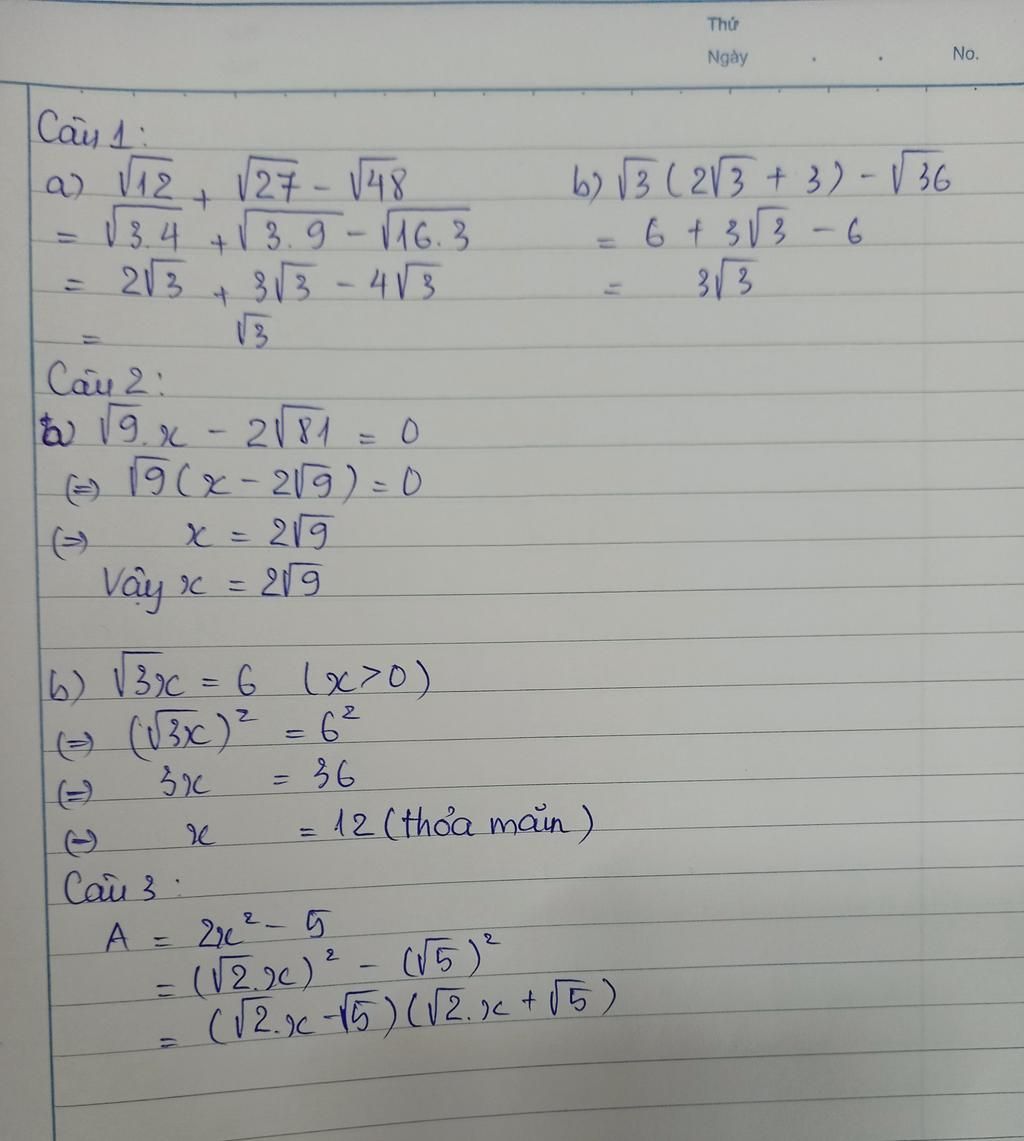 Thứ
Ngày . . No.
Câu 1:
a) √12 + √27 - √48
= √3.4 + √3.9 - √16.3
= 2√3 + 3√3 - 4√3
= √3
b) √3 (2√3 + 3) - √36
= 6 + 3√3 - 6
= 3√3
Câu 2:
a) √9.x - 2√81 = 0
(=) √9(x - 2√9) = 0
(=) x = 2√9
Vậy x = 2√9
b) √3x = 6 (x>0)
(=) (√3x)² = 6²
(=) 3x = 36
(=) x = 12 (thỏa mãn)
Câu 3:
A = 2x² - 5
= (√2.x)² - (√5)²
= (√2.x - √5)(√2.x + √5)